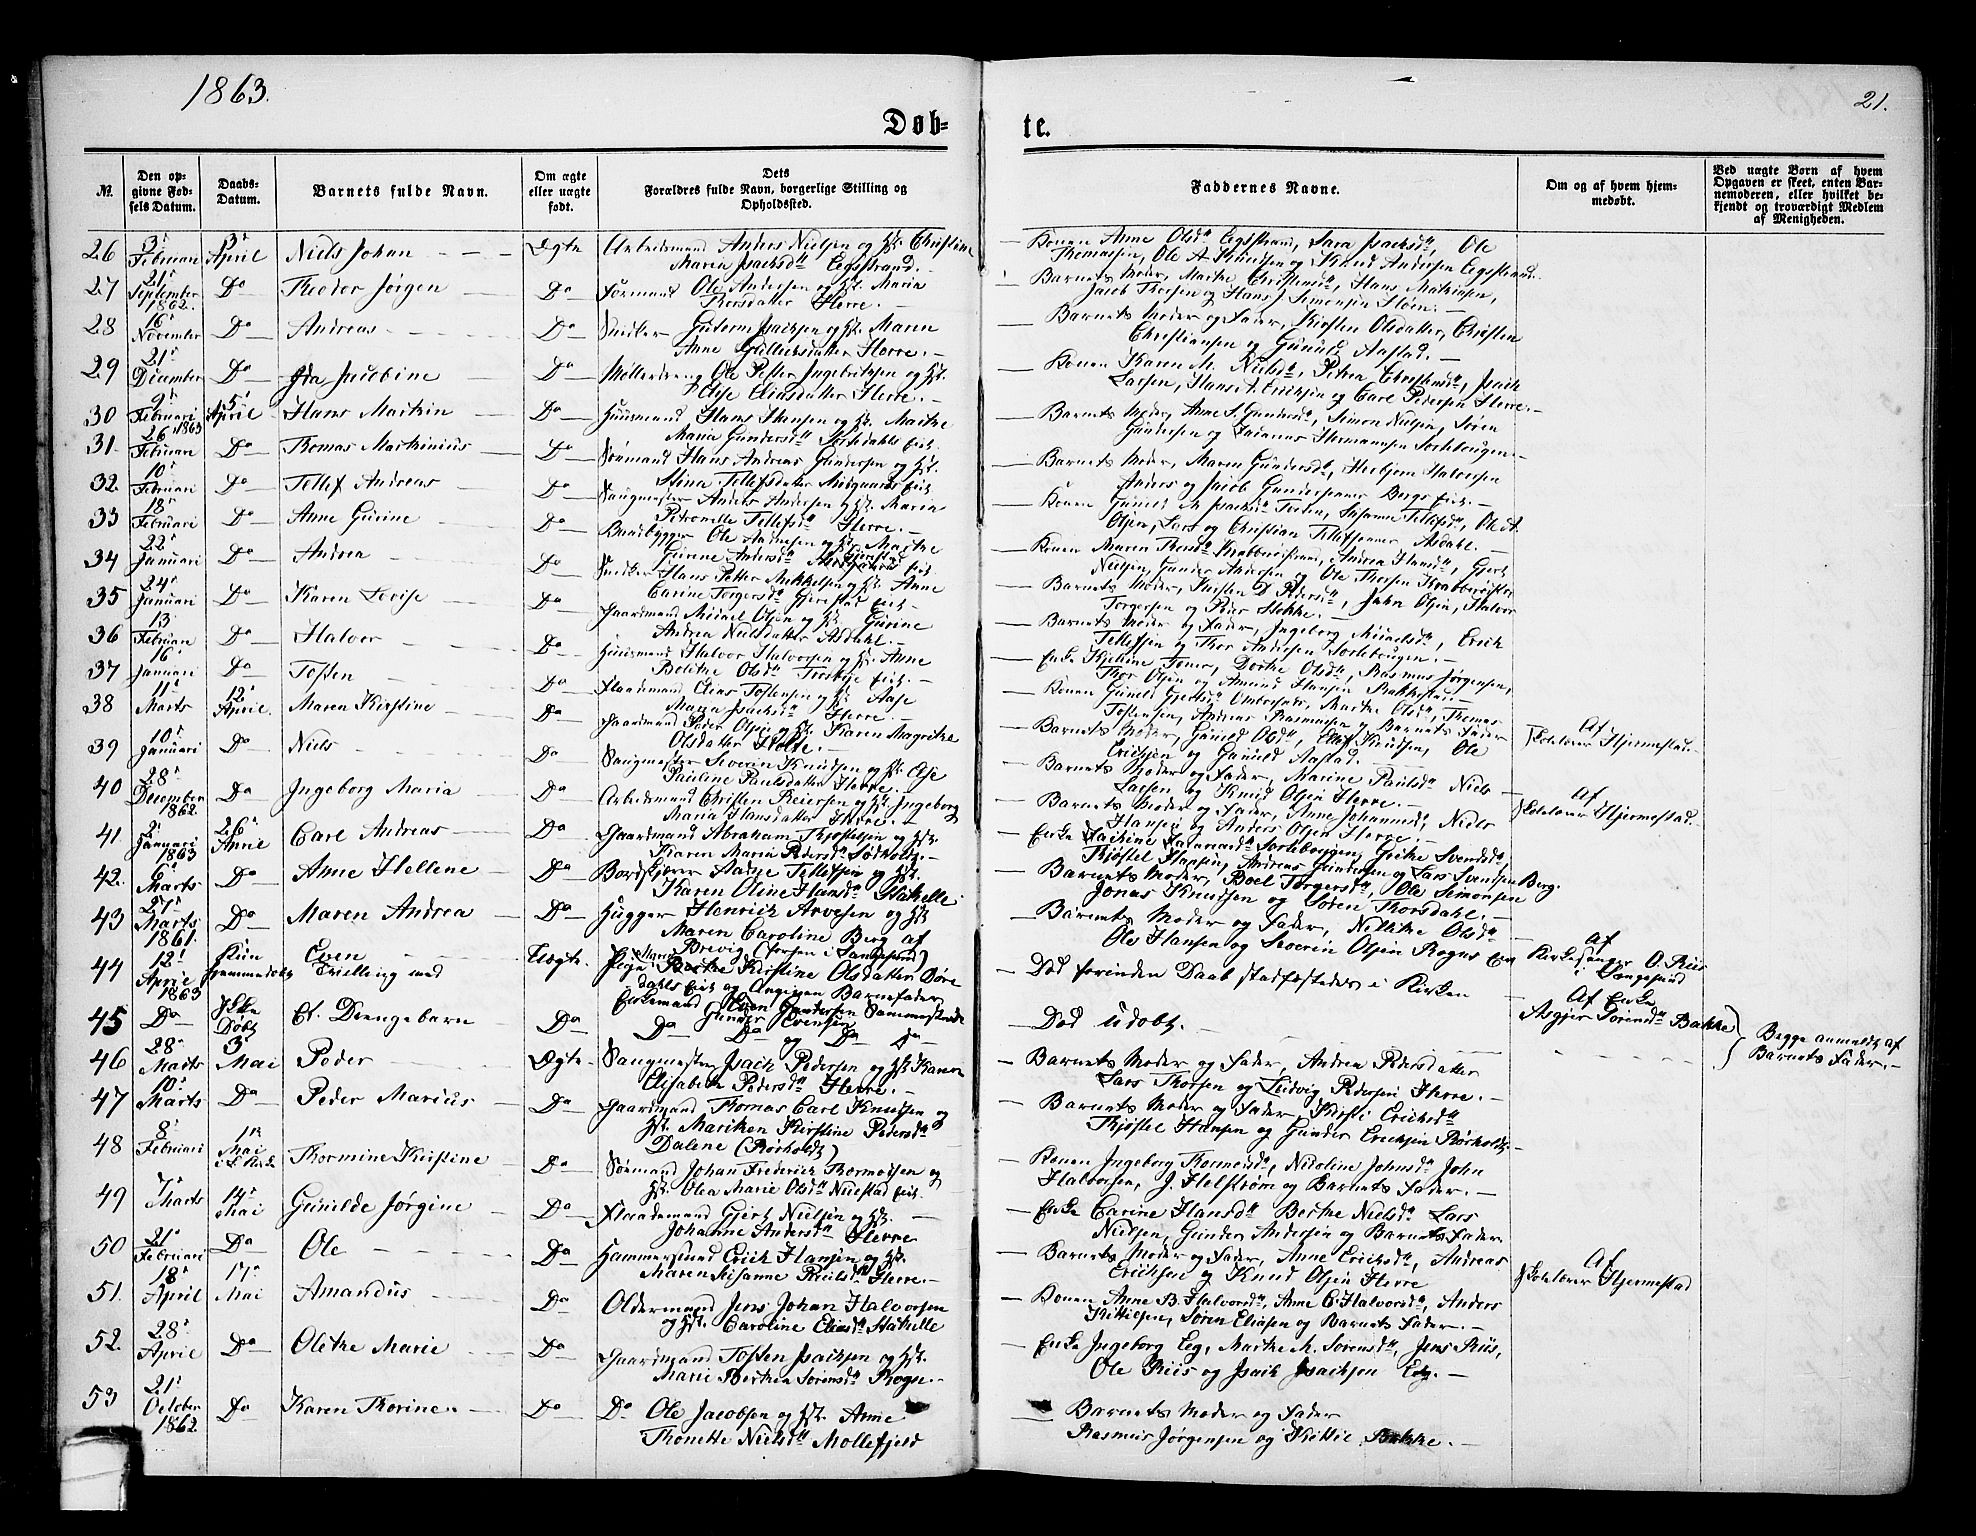 1863.
21.
Døb-
te.
№.
Den op-
givne Fød-
sels Datum.
Daabs-
Datum.
Barnets fulde Navn.
Om ægte
eller uægte
født.
Dets
Forældres fulde Navn, borgerlige Stilling og
Opholdssted.
Faddernes Navne.
Om og af hvem hjem-
medøbt.
Ved uægte Børn af hvem
Opgaven er skeet, enten Bar-
nemoderen, eller hvilket be-
kjendt og troværdigt Medlem
af Menigheden.
26 3' Februari 3' April Niels Johan Ægte Arbeidsmand Anders Nielsen og Christine
Maria Isaksd. Egsstrand.
Konen Anne Olsd. Egsstrand, Sara Isaksd., Ole
Thomassen, Ole A. Knudsen og Knud Andersen Egsstrand.
27 21' September 1862. Do Theodor Jørgen Do Formand Ole Andersen og Maria
Thorsdatter Herre.
Barnets Moder, Marthe Christensd., Hans Mathisen,
Jacob Thorsen og Hans J. Simonsen
28 16' November Do Andreas Do Snedker Guttorm Isaksen og Maren
Anne Gullicksdatter Herre.
Barnets Moder og Fader, Kirsten Olsdatter, Christen
Christiansen og Gunild Aastad.
29 21' December Do Ida Jacobine Do Møllerdreng Ole Peter Ingebritsen og
Else Eliasdatter Herre.
Konen Karen M. Nielsd., Petrea Christensd., Isach
Larsen, Hans A. Ericksen og Carl Pedersen Herre.
30 9' Februari 1863 5' April Hans Martin Do Huusmand Hans Hansen og Marthe
Maria Gundersd.
Barnets Moder, Anne S. Gundersd., Simon Nielsen, Søren
Gundersen og Hermannsen
31. 26' Februari Do Thomas Marthinius Do Sømand Hans Andreas Gundersen og
Stina Tellefsdatter
Barnets Moder, Maren Gundersd., Herbjørn Halvorsen
Anders og Jacob Gundersønner Bergs Eie.
32. 10' Februari Do Tellef Andreas Do Saugmester Anders Andersen og Maren
Petronelle Tellefsd. Herre.
Konen Gunild M. Isaksd. Susanne Tellefsd., Ole A.
Olsen, Lars og Christian Tellefsønner Asdahl.
33 18' Februari Do Anne Gurine Do Baadbygger Ole Andersen og Marthe
Gurine Andersd.
Konen Maren Thorsd. Krabberødstrand, Andrea Hansd., Gjert
Nielsen, Gunder Andersen og Ole Thorsen
34 22' Januari Do Andrea Do Snedker Hans Petter Mikkelsen og Anne
Carine Torgersd. Gjerestad Eie.
Barnets Moder, Kirsten D. Pedersd., John Olsen, Halvor
Torgersen og Peder Stokke.
35 24' Januari Do Karen Lovise Do Gaardmand Michael Olsen og Gurine
Andrea Nielsdatter Asdahl.
Barnets Moder og Fader, Ingeborg Michelsd., Erick
Tellefsen og Thor Andersen
36 13' Februari Do Halvor Do Huusmand Halvor Halvorsen og Anne
Bolette Olsd. Eie.
Enke Kjehine Dorthe Olsd., Rasmus Jørgensen,
Thor Olsen og Amund Hansen Bakkestad.
37 16' Januari Do Tosten Do Flaademand Elias Tostensen og Aase
Maria Isaksd. Herre.
Konen Gunild Gjertsd. Marthe Olsd., Thomas
Tostensen, Andreas Rasmussen og Barnets Fader
38 11' Marts 12' April. Maren Kirstine Do Gaardmand Peder Olsen og Karen Magrethe
Olsdatter Holte.
Barnets Moder, Gunild Olsd., Ellef Knudsen, Ole
Ericksen og Gunuld Aastad.
39 10' Januari Do Niels Do Saugmester Severin Knudsen og Else
Pauline Paulsdatter Herre.
Barnets Moder og Fader, Marine Paulsd. Niels
Larsen og Knud Olsen Herre.
Af
Skolelærer Hjermestad.
40 28' December 1862. Do Ingeborg Maria Do Arbeidsmand Christen Reiersen og Ingeborg
Maria Hansdatter Herre.
Barnets Moder og Fader, Anne Johannesd., Niels
Hansen og Anders Olsen Herre.
Af
Skolelærer Hjermestad.
41 2' Januari 1863 26' April Carl Andreas Do Gaardmand Abraham Kjøstelsen og
Karen Maria Pedersd.
Enke Gurthe Svendsd.,
Kjøstel Hansen, Andreas Gundersen og Lars Svendsen Berg.
42. 6' Marts Do Anne Hellene Do Bordskjærer Aanne Tellefsen og
Karen Oline Hansd. Stathelle
Barnets Moder, Boel Torgersd., Ole Simonsen
Jonas Knudsen og Søren Thorsdahl.
43 27' Marts 1861. Do Maren Andrea Do Hugger Henrick Arvesen og
Maren Caroline Berg af
Brevig (forhen i Langesund)
Barnets Moder og Fader, Olsd.
Ole Hansen og Severin Olsen Rogns Eie
44 12' April 1863 Kun hjemmedøbt Even Tvilling med Uægte. Pige Berthe Kirstine Olsdatter
Eie og Angiven Barnefader
Enkemand Even Gundersen Sammesteds
Død forinden Daab stadfæstedes i Kirken
Af
Kirkesanger O. Riis
i Langesund
45 Do Ikke Døbt Et Drengebarn Do Do Gunder Evensen Do og Do Do
Død udøbt.
Af Enke
Asgjer Sørensd. Bakke
Begge anmeldt af
Barnets Fader.
46 28' Marts 3' Mai Peder Ægte Saugmester Isach Pedersen og Karen
Elisabeth Pedersd. Herre.
Barnets Moder og Fader, Andrea Pedersdatter
Lars Thorsen og Ludvig Pedersen Herre.
47 10' Marts Do Peder Marius Do Gaardmand Thomas Carl Knudsen og
Mariken Kirstine Pedersd.
Dalene (Rørholt)
Barnets Moder og Fader, Kirsti Ericksd.
Kjøstel Hansen og Gunder Ericksen Rørholt
48 8' Februari 1ste Mai Thormine Kirstine Do Sømand Johan Frederick Thormodsen og
Olea Marie Olsd. Eie.
Konen Ingeborg Thormodsd., Nicoline Johnsd. John
Halvorsen, J. Helstrøm og Barnets Fader.
49 7' Marts 14' Mai Gunilde Jørgine Do Flaademand Gjert Nielsen og
Johanne Andersd. Herre
Enke Carine Hansd. Berthe Nielsd. Lars
Nielsen, Gunder Andersen og Barnets Fader
50 21' Februari Do Ole Do Hammersmed Erick Hansen og
Maren Susanne Paulsd. Herre.
Barnets Moder og Fader, Anne Ericksd., Andreas
Ericksen og Knud Olsen Herre
Af
Skolelærer Hjermestad
51. 18' April 17' Mai Amandus Do Oldermand Jens Johan Halvorsen
og Caroline Eliasd. Stathelle
Konen Anne B. Halvorsd., Anne C. Halvorsd., Anders
Kittilsen, Søren Eliasen og Barnets Fader.
52. 28' April Do Olethe Marie Do Gaardmand Tosten Isachsen og
Marie Berthea Sørensd. Rogn.
Enke Ingeborg Eeg, Marthe M. Sørensd., Jens Riis,
Ole Riis og Isach Isachsen Eeg.
53 21' October 1862. Do Karen Thorine Do Do Ole Jacobsen og Anne
Thonette Nielsd. Mollefjeld
Barnets Moder og Fader
Rasmus Jørgensen og Kittil Bakke.